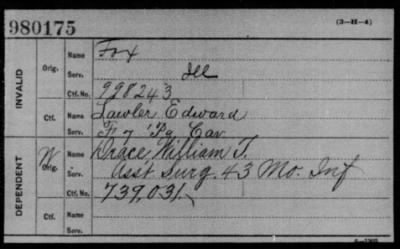 980175
(3-H-4)
INVALID
Orig.
Name
Fox
Serv.
Ill
Ctf. No.
998243
Ctf.
Name
Lawler Edward
Serv.
F 7 Pa Cav
DEPENDENT
W
Orig.
Name
Drace William T.
Serv.
Asst Surg. 43 Mo. Inf
Ctf. No.
739,031
Ctf.
Name
Serv.